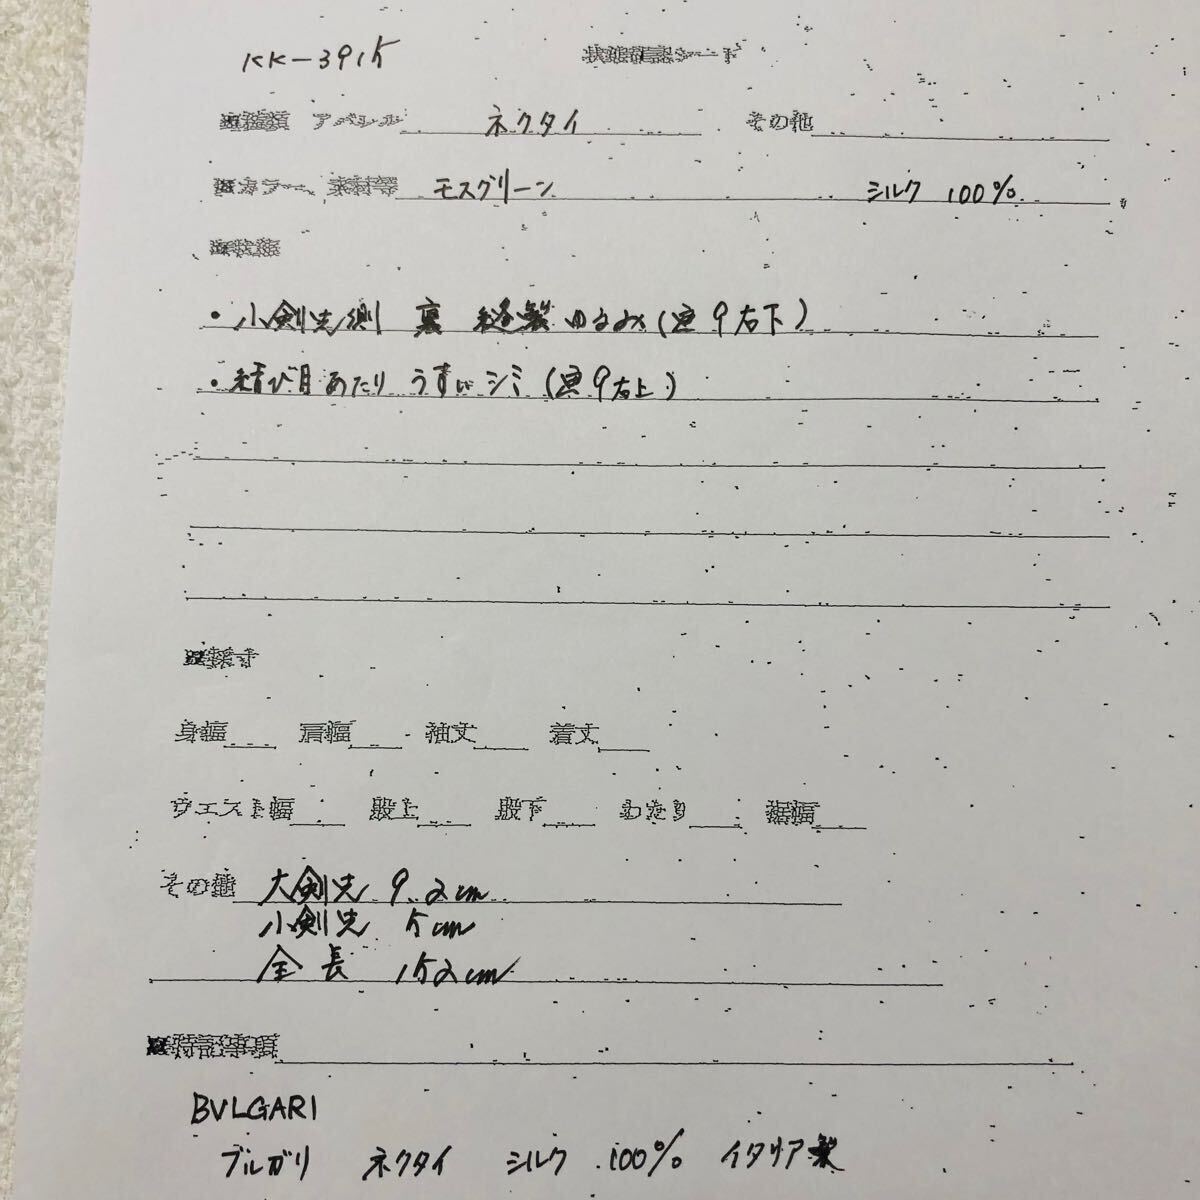 KK-3915 状態確認シート
■種類 アパレル ネクタイ その他
■カラー、素材等 モスグリーン シルク 100%
■状態
・小剣先側 裏 縫製ゆるみ(画9右下)
・結び目あたり うすいシミ(画9右上)
■採寸
身幅 肩幅 袖丈 着丈
ウエスト幅 股上 股下 わたり 裾幅
その他 大剣先 9.2cm
小剣先 5cm
全長 152cm
■特記事項
BVLGARI
ブルガリ ネクタイ シルク 100% イタリア製